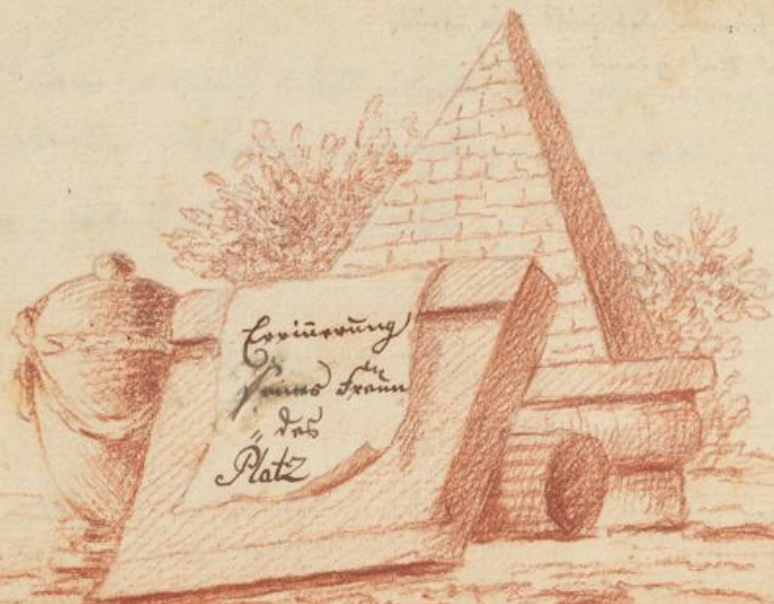 Erinerung
Seines Freun
„ des
Platz